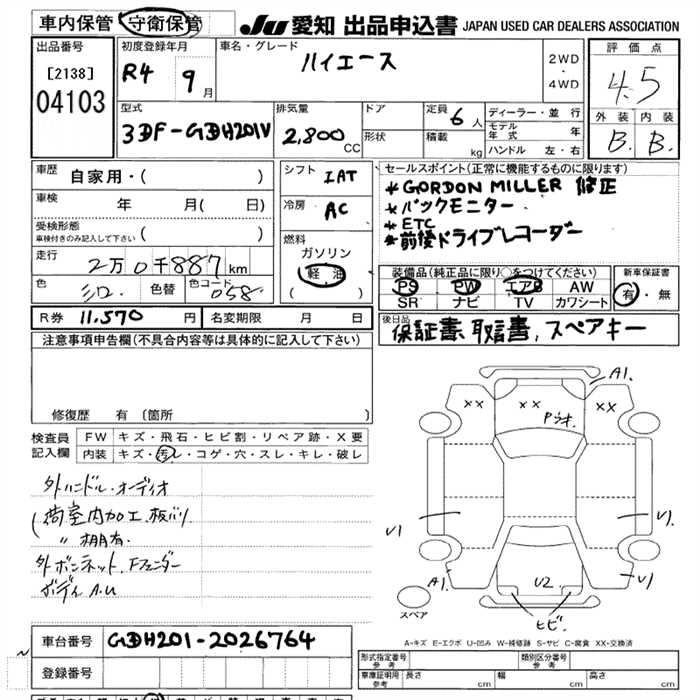 車内保管 守衛保管 JU 愛知 出品申込書 JAPAN USED CAR DEALERS ASSOCIATION
出品番号 初度登録年月 車名・グレード 評価点
[2138] R4 9月 ハイエース 2WD・4WD 4.5
04103
型式 排気量 ドア 定員 6人 ディーラー・並行 外装 内装
3DF-GDH201V 2,800CC 形状 積載 kg モデル年式 年 B. B.
ハンドル 左・右
車歴 自家用・( ) シフト IAT セールスポイント(正常に機能するものに限ります)
車検 年 月( 日) 冷房 AC *GORDON MILLER 修正
*バックモニター
受検形態 車検付きのみ記入して下さい ( ) *ETC
燃料 *前後ドライブレコーダー
走行 2万0千887km ガソリン
軽油 装備品(純正品に限り○をつけてください) 新車保証書
色 シロ 色替 色コード 058 ( ) PS PW エアB AW 有・無
SR ナビ TV カワシート
R券 11,570円 名変期限 月 日 後日品
保証書、取説書、スペアキー
注意事項申告欄(不具合内容等は具体的に記入して下さい)
修復歴 有〔箇所
検査員記入欄 FW キズ・飛石・ヒビ割・リペア跡・X要
内装 キズ・汚レ・コゲ・穴・スレ・キレ・破レ
外ハンドル・オーディオ
荷室内加工、板バリ
〃 棚有.
外ボンネット、Fフェンダー
ボディA.U
A1. XX XX XX Pラオ.
U1 U1
A1. U2 U1
ヒビ
スペア
A-キズ E-エクボ U-凹み W-補修跡 S-サビ C-腐食 XX-交換済
車台番号 GDH201-2026764
登録番号
形式指定番号 参考 類別区分番号 参考
車庫証明用 参考 長さ cm 幅 cm 高さ cm